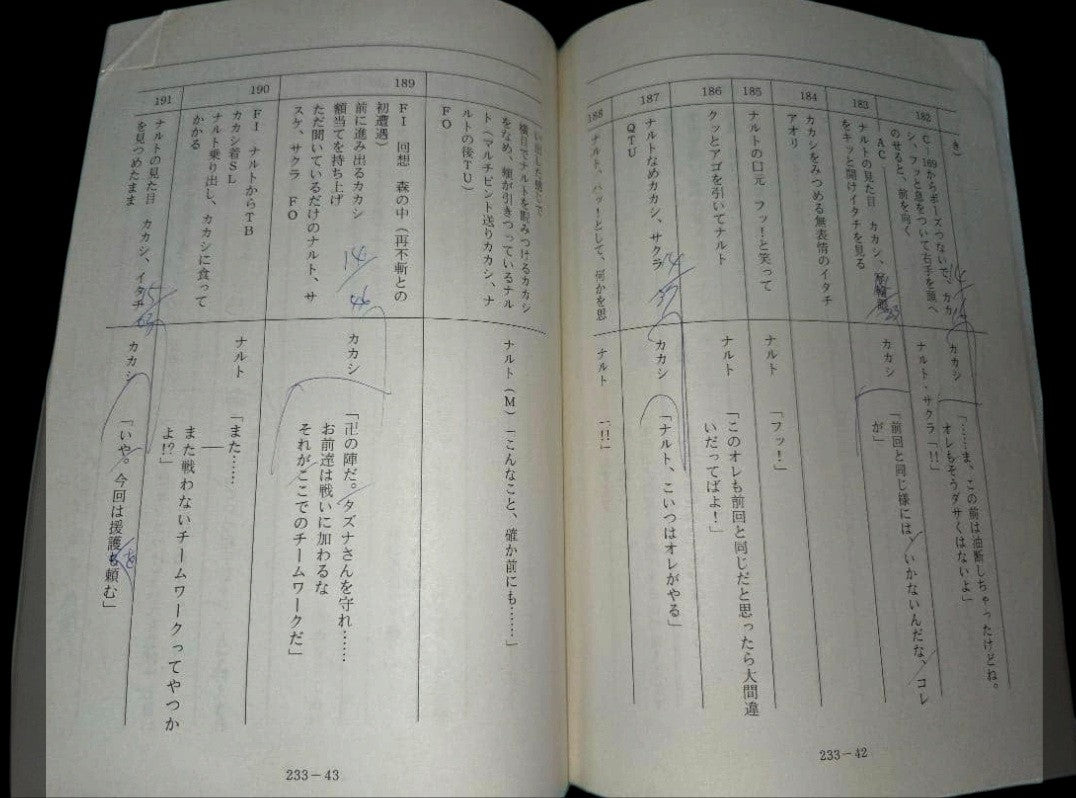 き)
182
C・169からポーズつないで、カカ
シ、フッと息をついて右手を頭へ
のせると、前を向く
カカシ
「……ま、この前は油断しちゃったけどね。
オレもそうダサくはないよ」
ナルト・サクラ「!!」
183
AC
ナルトの見た目 カカシ、
をキッと開けイタチを見る
カカシ
「前回と同じ様には、いかないんだな、コレ
が」
184
カカシをみつめる無表情のイタチ
アオリ
185
ナルトの口元 フッ!と笑って
ナルト
「フッ!」
186
クッとアゴを引いてナルト
ナルト
「このオレも前回と同じだと思ったら大間違
いだってばよ!」
187
ナルトなめカカシ、サクラ
QTU
カカシ
「ナルト、こいつはオレがやる」
188
ナルト、ハッ!として、何かを思
ナルト
「!!」
233-42
い出した感じで
横目でナルトを睨みつけるカカシ
をなめ、頬が引きつっているナル
ト(マルチピント送りカカシ、ナ
ルトの後TU)
FO
ナルト(M)「こんなこと、確か前にも……」
189
FI 回想 森の中(再不斬との
初遭遇)
前に進み出るカカシ
額当てを持ち上げ
ただ聞いているだけのナルト、サ
スケ、サクラ FO
カカシ
「卍の陣だ。タズナさんを守れ……
お前達は戦いに加わるな
それがここでのチームワークだ」
190
FI ナルトからTB
カカシ着SL
ナルト乗り出し、カカシに食って
かかる
ナルト
「また……
――
また戦わないチームワークってやつか
よ!?」
191
ナルトの見た目 カカシ、イタチ
を見つめたまま
カカシ
「いや。今回は援護も頼む」
233-43